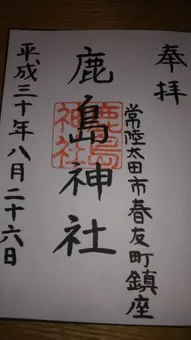 奉拝
常陸太田市春友町鎮座
鹿島神社
鹿島神社
平成三十年八月二十六日